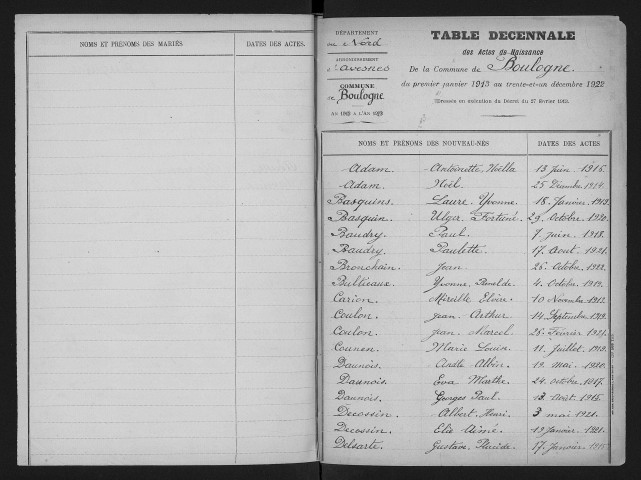 NOMS ET PRÉNOMS DES MARIÉS DATES DES ACTES.
DÉPARTEMENT
du Nord
ARRONDISSEMENT
d'Avesnes
COMMUNE
de Boulogne
AN 1913 A L'AN 1922
TABLE DECENNALE
des Actes de Naissance
De la Commune de Boulogne.
du premier janvier 1913 au trente-et-un décembre 1922
(Dressée en exécution du Décret du 27 février 1913.
NOMS ET PRÉNOMS DES NOUVEAU-NÉS DATES DES ACTES
Adam. Antoinette, Noëlla 13 Juin 1916.
Adam. Noël. 25 Décembre
Basquins. Laure, Yvonne. 18. Janvier 1913.
Basquin. Ulger, Fortuné. 29. Octobre. 1920.
Baudry. Paul. 7. Juin. 1918.
Baudry. Paulette. 17. Aout. 1921.
Bronchain. Jean. 26. Octobre. 1922.
Yvonne, 4. Octobre. 1919.
Carion. Mireille 10 Novembre 1913.
Coulon. Jean Arthur 14. Septembre 1919.
Coulon. Jean. Marcel. 26. Février 1921.
Marie Louise. 11. Juillet. 1919.
Daunois. Albin. 19. Mai. 1920.
Daunois. Eva Marthe. 24. Octobre. 1917.
Daunois. Georges Paul. 13. Août.
Decossin. Albert, Henri. 3 mai 1921.
Decossin. Elie Aimé. 19 Janvier. 1921.
Delsarte. Gustave, Placide. 17. Janvier